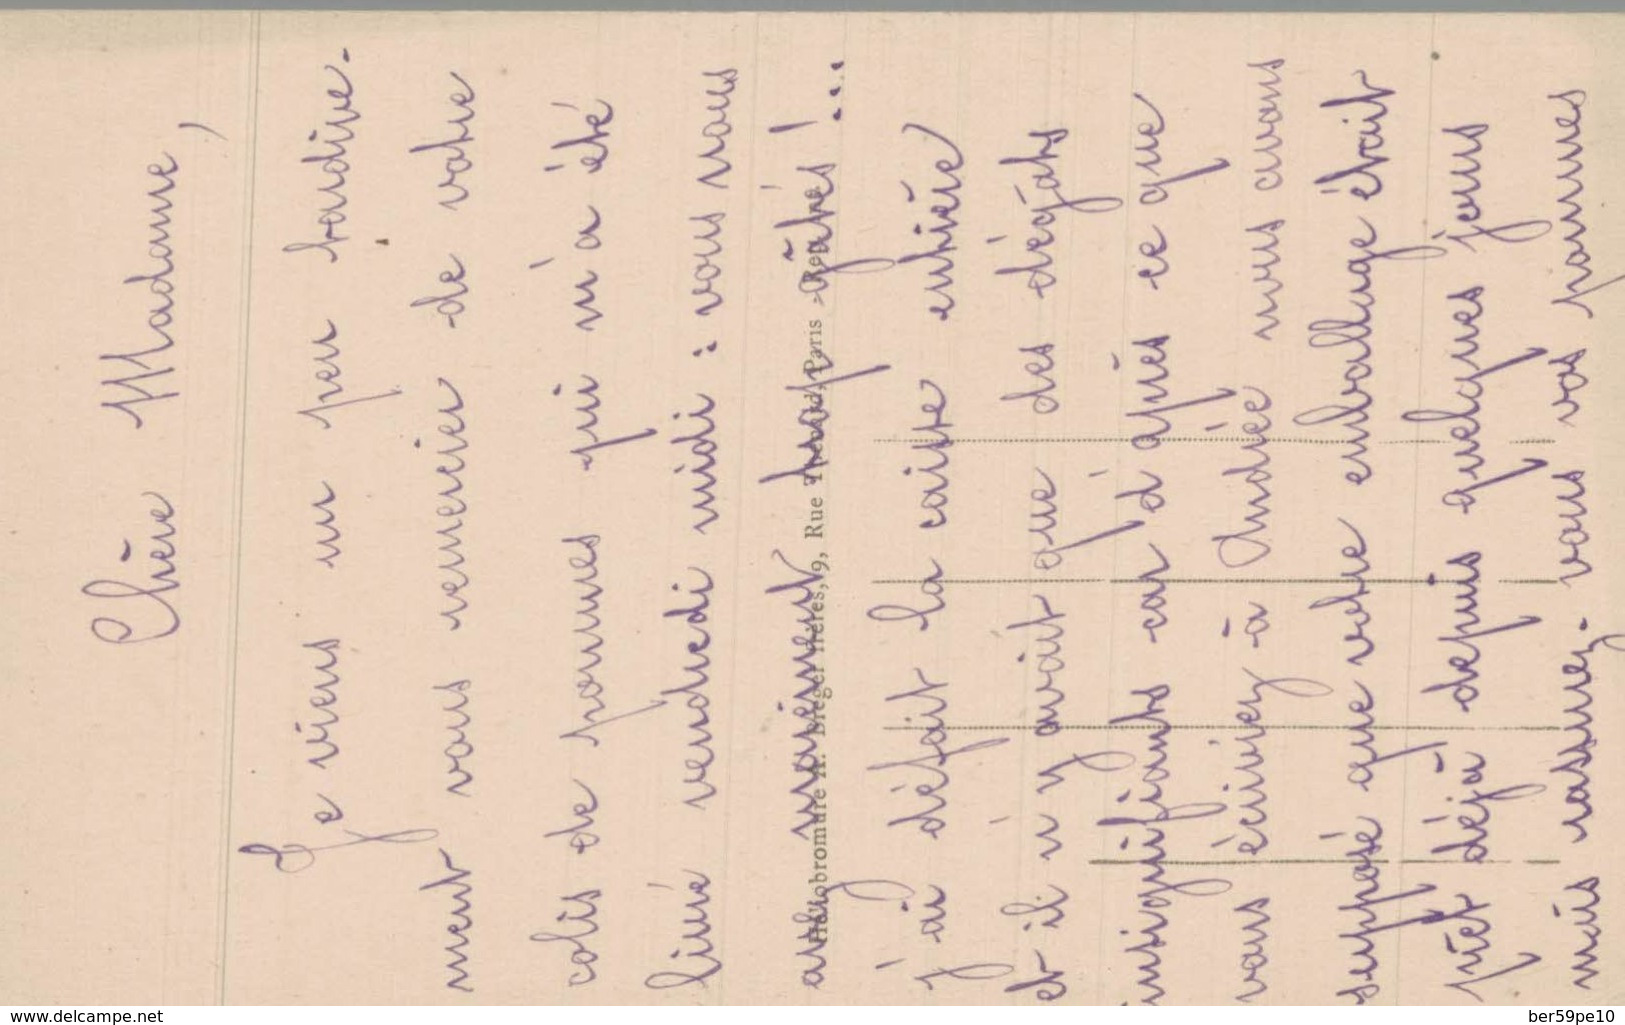 Chère Madame,
Je viens un peu tardive-
ment vous remercier de votre
colis de pommes qui m'a été
livré vendredi midi : vous nous
avez vraiment trop gâtés !...
J'ai défait la caisse entière
et il n'y avait que des dégâts
insignifiants car d'après ce que
vous écriviez à Andrée nous avons
supposé que votre emballage était
prêt déjà depuis quelques jours
mais rassurez-vous vos pommes
Héliobromure A. Breger frères, 9, Rue Thénard, Paris - Repr
www.delcampe.net
ber59pe10